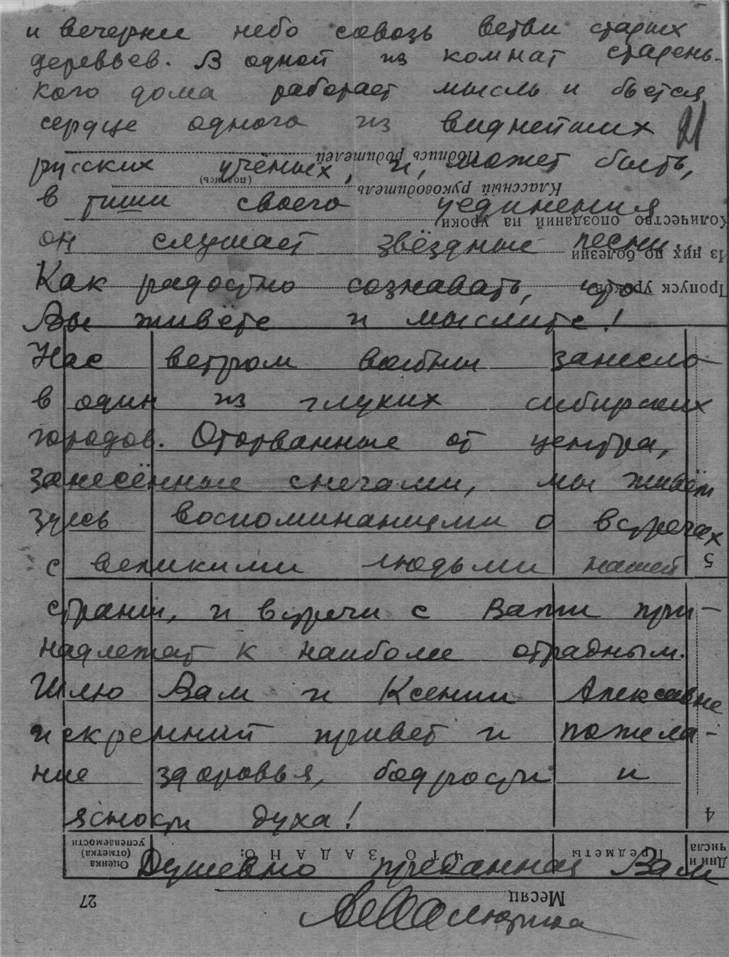 и вечернее небо сквозь ветви старых
деревьев. В одной из комнат старень-
кого дома работает мысль и бьется
сердце одного из виднейших
21
Подпись родителей
русских учёных, и, может быть,
(подпись)
Классный руководитель
в тиши своего уединения
Количество опозданий на уроки
он слушает звёздные песни.
Из них по болезни
Как радостно сознавать, что
Пропуск уроков
Вы живёте и мыслите!
Нас ветром войны занесло
в один из глухих сибирских
городов. Оторванные от центра,
занесённые снегами, мы живём
здесь воспоминаниями о встречах
с великими людьми нашей
5
страны, и встречи с Вами при-
надлежат к наиболее отрадным.
Шлю Вам и Ксении Алексеевне
искренний привет и пожела-
ние здоровья, бодрости и
ясности духа!
4
Оценка (отметка) успеваемости
ЧТО ЗАДАНО:
Предметы
Дни и числа
Душевно преданная Вам
27
Месяц